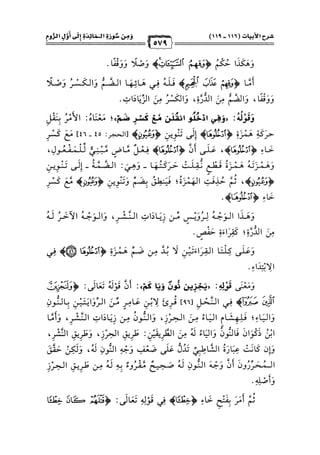 شرح الأبيات (١١٦ – ١١٩)
وَمِنْ سُورَةِ الْخَالِدَةِ إِلَى أَوَّلِ الرُّومِ
٥٧٩
وَهَكَذَا حُكْمُ ﴿وَقِهِمُ السَّيِّئَاتِ﴾ وَصْلًا وَوَقْفًا.
أَمَّا ﴿وَقِهِمْ عَذَابَ الْجَحِيمِ﴾ فَلَهُ فِي هَائِهَا الضَّمُّ وَالْكَسْرُ وَصْلًا
وَوَقْفًا، وَالضَّمُّ مِنَ الدُّرَّةِ، وَالكَسْرُ مِنَ الزِّيَادَاتِ.
وَقَوْلُهُ: «وَفِي ادْخُلُوا انْقُلَنْ مَعْ كَسْرِ ضَمٍّ»؛ مَعْنَاهُ: الأَمْرُ بِنَقْلِ
حَرَكَةِ هَمْزَةِ ﴿ادْخُلُوهَا﴾ إِلَى تَنْوِينِ ﴿وَعُيُونٍ﴾ [الحجر: ٤٥ - ٤٦] مَعَ كَسْرِ
خَاءِ ﴿ادْخُلُوهَا﴾، عَلَى أَنَّ ﴿ادْخُلُوهَا﴾ فِعْلٌ مَاضٍ مَبْنِيٌّ لِلْمَفْعُولِ،
وَهَمْزَتُهُ هَمْزَةُ قَطْعٍ نُقِلَتْ حَرَكَتُهَا - وَهِيَ: الضَّمَّةُ - إِلَى تَنْوِينِ
﴿وَعُيُونٍ﴾، ثُمَّ حُذِفَتِ الهَمْزَةُ؛ فَيَنْطِقُ بِضَمِّ تَنْوِينِ ﴿وَعُيُونٍ﴾ مَعَ كَسْرِ
خَاءِ ﴿ادْخُلُوهَا﴾.
وَهَذَا الوَجْهُ لِرُوَيْسٍ مِنْ زِيَادَاتِ النَّشْرِ، وَالوَجْهُ الآخَرُ لَهُ
مِنَ الدُّرَّةِ؛ كَقِرَاءَةِ حَفْصٍ.
وَعَلَى كِلْتَا القِرَاءَتَيْنِ لَا بُدَّ مِنْ ضَمِّ هَمْزَةِ ﴿ادْخُلُوهَا﴾ فِي
الِابْتِدَاءِ.
وَمَعْنَى قَوْلِهِ: «يَجْزِيَنْ نُونٌ وَيَا كَمْ»: أَنَّ قَوْلَهُ تَعَالَى: ﴿وَلَنَجْزِيَنَّ
الَّذِينَ صَبَرُوا﴾ فِي النَّحْلِ [٩٦] قُرِئَ لِابْنِ عَامِرٍ مِنَ الرِّوَايَتَيْنِ بِالنُّونِ
وَاليَاءِ؛ فَلِهِشَامٍ اليَاءُ مِنَ الحِرْزِ، وَالنُّونُ مِنْ زِيَادَاتِ النَّشْرِ، وَأَمَّا
ابْنُ ذَكْوَانَ فَالنُّونُ وَاليَاءُ لَهُ مِنَ الطَّرِيقَيْنِ: طَرِيقِ الحِرْزِ، وَطَرِيقِ النَّشْرِ،
وَإِنْ كَانَتْ عِبَارَةُ الشَّاطِبِيِّ تَدُلُّ عَلَى ضَعْفِ وَجْهِ النُّونِ لَهُ، وَلَكِنْ حَقَّقَ
المُحَرِّرُونَ أَنَّ وَجْهَ النُّونِ لَهُ صَحِيحٌ مَقْرُوءٌ بِهِ لَهُ مِنْ طَرِيقِ الحِرْزِ
وَأَصْلِهِ.
ثُمَّ أَمَرَ بِفَتْحِ خَاءِ ﴿خِطْئًا﴾ فِي قَوْلِهِ تَعَالَى: ﴿قَتْلَهُمْ كَانَ خِطْئًا